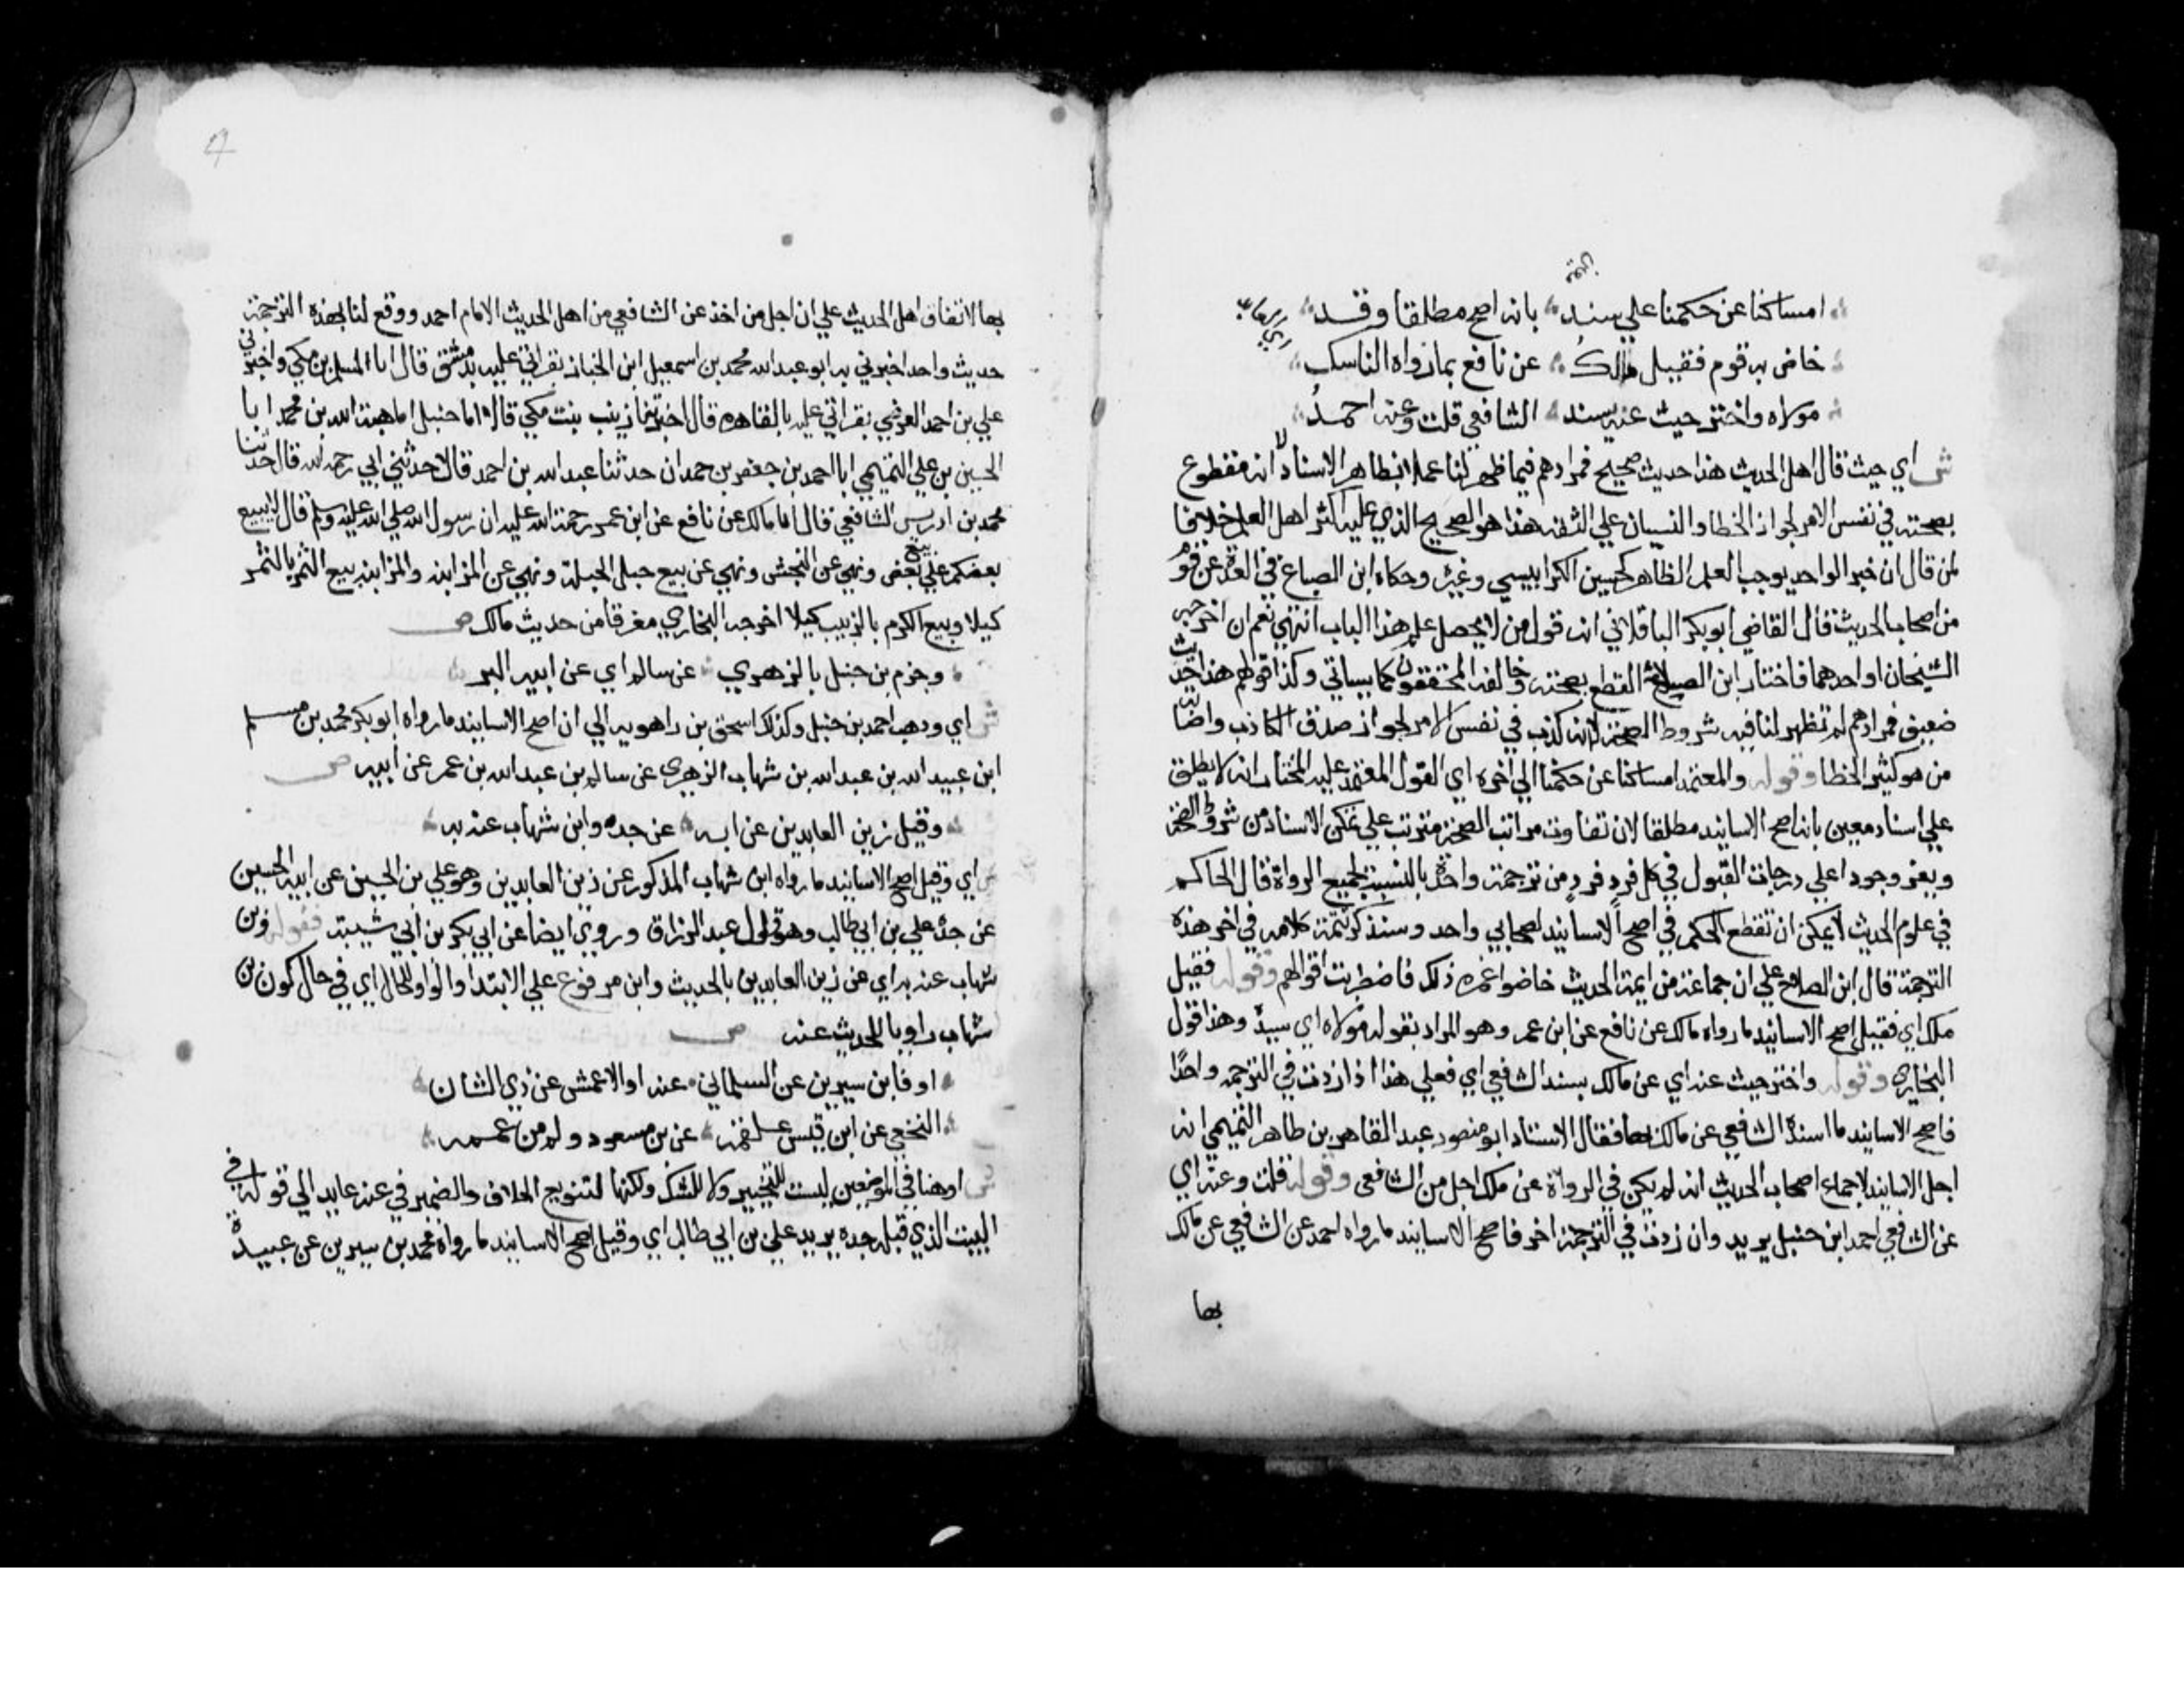 امساكنا عن حكمنا علي سند بانه اصح مطلقا وقد
خاض به قوم فقيل مالك عن نافع بما رواه الناسك
مولاه واختر حيث عنه يسند الشافعي قلت وعنه احمد
ش اي حيث قال اهل الحديث هذا حديث صحيح فمرادهم فيما ظهر لنا عملا بظاهر الاسناد لا انه مقطوع
بصحته في نفس الامر لجواز الخطا والنسيان علي الثقه هذا هو الصحيح الذي عليه اكثر اهل العلم خلافا
لمن قال ان خبر الواحد يوجب العلم الظاهر كحسين الكرابيسي وغيره وحكاه ابن الصباغ في العدة عن قوم
من اصحاب الحديث قال القاضي ابوبكر الباقلاني انه قول من لا يحصل علم هذا الباب انتهي نعم ان اخرجه
الشيخان او احدهما فاختار ابن الصلاح القطع بصحته وخالفه المحققون كما سياتي وكذا قولهم هذا حديث
ضعيف فمرادهم لم تظهر لنا فيه شروط الصحة لانه كذب في نفس الامر لجواز صدق الكاذب واصابة
من هو كثير الخطا وقوله والمعتمد امساكنا عن حكمنا الي اخره اي القول المعتمد عليه المختار انه لا يطلق
علي اسناد معين بانه اصح الاسانيد مطلقا لان تفاوت مراتب الصحة مترتب علي تمكن الاسناد من شروط الصحة
ويعز وجود اعلي درجات القبول في كل فرد فرد من ترجمة واحدة بالنسبة لجميع الرواة قال الحاكم
في علوم الحديث لا يمكن ان تقطع الحكم في اصح الاسانيد لصحابي واحد وسنذكر تتمة كلامه في اخر هذه
الترجمة قال ابن الصلاح علي ان جماعة من ايمة الحديث خاضوا غمرة ذلك فاضطربت اقوالهم وقوله فقيل
ملك اي فقيل اصح الاسانيد ما رواه مالك عن نافع عن ابن عمر وهو المراد بقوله مولاه اي سيده وهذا قول
البخاري وقوله واختر حيث عنه اي عن مالك يسند الشافعي اي فعلي هذا اذا زدت في الترجمه واحدا
فاصح الاسانيد ما اسنده الشافعي عن مالك بها فقال الاستاد ابو منصور عبد القاهر بن طاهر التميمي انه
اجل الاسانيد لاجماع اصحاب الحديث انه لم يكن في الرواة عن ملك اجل من الشافعي وقوله قلت وعنه اي
عن الشافعي احمد ابن حنبل يريد وان زدت في الترجمة اخر فاصح الاسانيد ما رواه احمد عن الشافعي عن مالك
بها
بها لاتفاق اهل الحديث علي ان اجل من اخذ عن الشافعي من اهل الحديث الامام احمد ووقع لنا بهذه الترجمة
حديث واحد اخبرني به ابو عبد الله محمد بن اسمعيل ابن الخباز بقراتي عليه بدمشق قال ابا المسلم بن مكي واخبرني
علي بن احمد العرضي بقراتي عليه بالقاهرة قال اخبرتنا زينب بنت مكي قالا اما حنبل اما هبة الله بن محمد ابا
الحسين بن علي التميمي ابا احمد بن جعفر بن حمدان حدثنا عبد الله بن احمد قال حدثني ابي رحمه الله قال حدثنا
محمد بن ادريس الشافعي قال اما مالك عن نافع عن ابن عمر رحمة الله عليه ان رسول الله صلي الله عليه وسلم قال لا يبيع
بعضكم علي بيع بعض ونهي عن النجش ونهي عن بيع حبل الحبلة ونهي عن المزابنه والمزابنه بيع الثمر بالتمر
كيلا وبيع الكرم بالزبيب كيلا اخرجه البخاري مفرقا من حديث مالك ص
وجزم بن حنبل بالزهري عن سالم اي عن ابيه البر
ش اي وذهب احمد بن حنبل وكذلك اسحق بن راهويه الي ان اصح الاسانيد ما رواه ابو بكر محمد بن مسلم
ابن عبيد الله بن عبد الله بن شهاب الزهري عن سالم بن عبد الله بن عمر عن ابيه ص
وقيل زين العابدين عن ابه عن جده وابن شهاب عنه به
ش اي وقيل اصح الاسانيد ما رواه ابن شهاب المذكور عن زين العابدين وهو علي بن الحسين عن ابيه الحسين
عن جده علي بن ابي طالب وهو قول عبد الرزاق وروي ايضا عن ابي بكر بن ابي شيبة فقوله وبن
شهاب عنه به اي عن زين العابدين بالحديث وابن مرفوع علي الابتدا والواو للحال اي في حال كون بن
شهاب راويا للحديث عنه ص
او فابن سيرين عن السلماني عنه او الاعمش عن ذي الشان
النخعي عن ابن قيس علقمه عن بن مسعود ولم من عممه
ش او هنا في الموضعين ليست للتخيير ولا للشك ولكنها لتنويع الخلاف والضمير في عنه عايد الي قوله في
البيت الذي قبله جده يريد علي بن ابي طالب اي وقيل اصح الاسانيد ما رواه محمد بن سيرين عن عبيدة